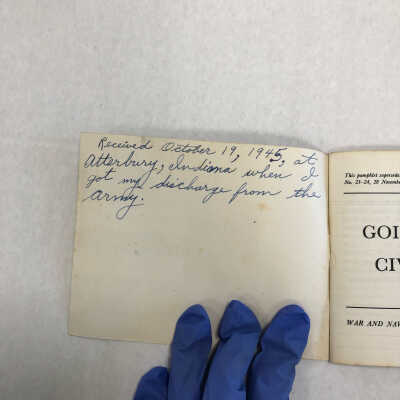 Received October 19, 1945, at
Atterbury, Indiana when I
got my discharge from the
army.
This pamphlet supersedes
No. 21-24, 20 November
GOI
CIV
WAR AND NAV